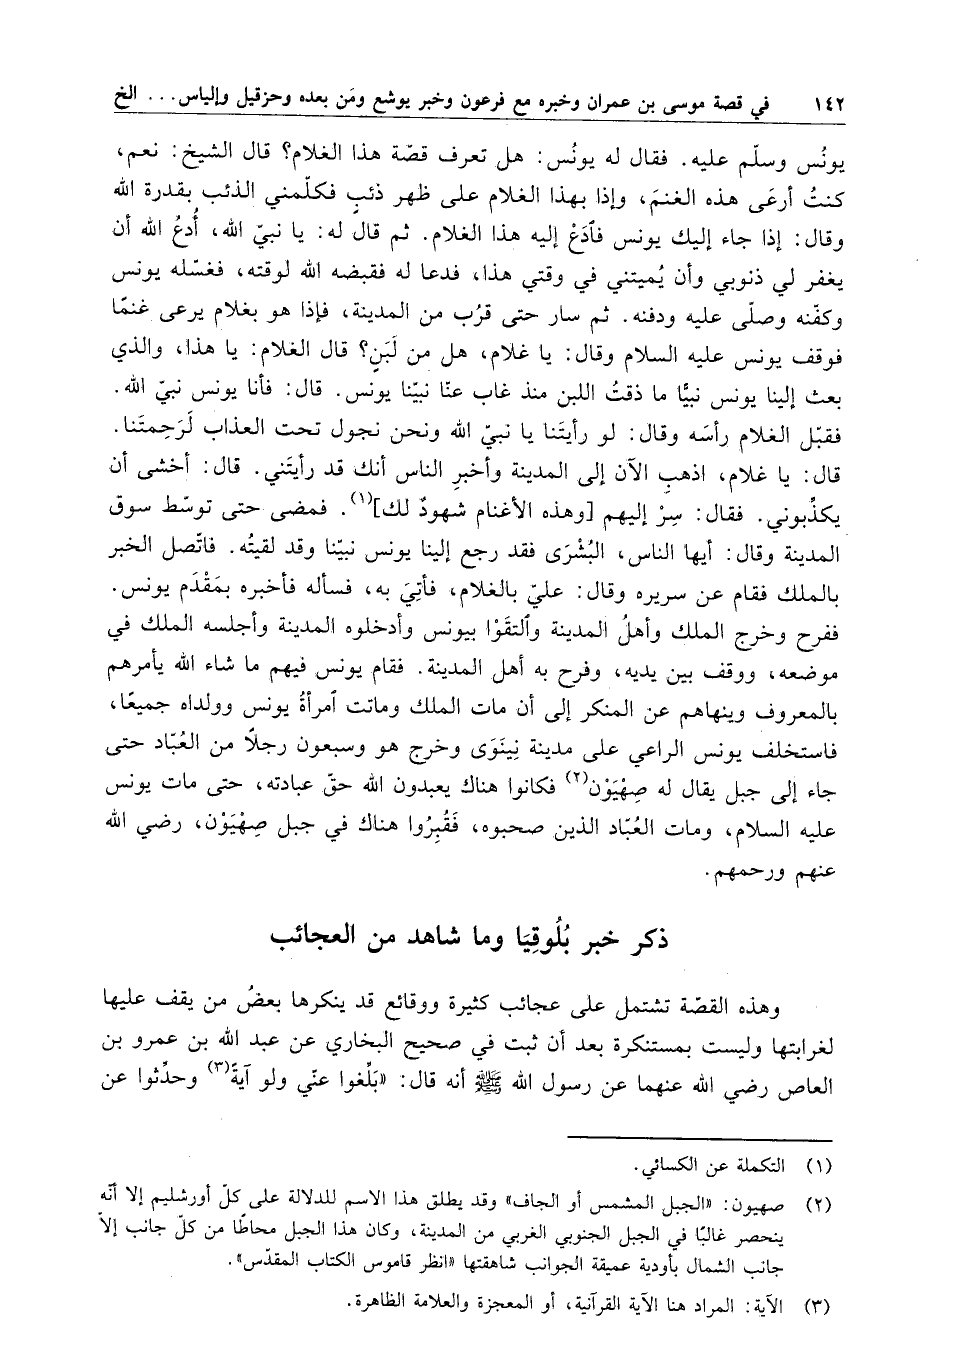 ١٤٢ في قصة موسى بن عمران وخبره مع فرعون وخبر يوشع ومَن بعده وحزقيل وإلياس . . . الخ
يونُس وسلّم عليه. فقال له يونُس: هل تعرف قصّة هذا الغلام؟ قال الشيخ: نعم،
كنتُ أرعَى هذه الغنمَ، وإذا بهذا الغلام على ظهر ذئبٍ فكلّمني الذئب بقدرة الله
وقال: إذا جاء إليك يونس فٱدَفَعْ إليه هذا الغلام. ثم قال له: يا نبيّ الله، أُدعُ الله أن
يغفر لي ذنوبي وأن يُميتني في وقتي هذا، فدعا له فقبضه الله لوقته، فغسّله يونس
وكفّنه وصلّى عليه ودفنه. ثم سار حتى قرُب من المدينة، فإذا هو بغلام يرعى غنمًا
فوقف يونس عليه السلام وقال: يا غلام، هل من لَبَنٍ؟ قال الغلام: يا هذا، والذي
بعث إلينا يونس نبيًّا ما ذقتُ اللبن منذ غاب عنّا نبيّنا يونس. قال: فأنا يونس نبيّ الله.
فقبّل الغلام رأسَه وقال: لو رأيتَنا يا نبيّ الله ونحن نجول تحت العذاب لَرَحِمتَنا.
قال: يا غلام، اذهبِ الآن إلى المدينة وأخبرِ الناس أنك قد رأيتَني. قال: أخشى أن
يكذِّبوني. فقال: سِرْ إليهم [وهذه الأغنام شهودٌ لك](١). فمضى حتى توسّط سوق
المدينة وقال: أيها الناس، البُشْرَى فقد رجع إلينا يونس نبيّنا وقد لقيتُه. فاتّصل الخبر
بالملك فقام عن سريره وقال: عليّ بالغلام، فأُتِيَ به، فسأله فأخبره بمَقْدَم يونس.
ففرح وخرج الملك وأهلُ المدينة وٱلتقَوْا بيونس وأدخلوه المدينة وأجلسه الملك في
موضعه، ووقف بين يديه، وفرح به أهل المدينة. فقام يونس فيهم ما شاء الله يأمرهم
بالمعروف وينهاهم عن المنكر إلى أن مات الملك وماتت ٱمرأةُ يونس وولداه جميعًا،
فاستخلف يونس الراعي على مدينة نِينَوَى وخرج هو وسبعون رجلاً من العُبّاد حتى
جاء إلى جبل يقال له صِهْيَوْن(٢) فكانوا هناك يعبدون الله حقّ عبادته، حتى مات يونس
عليه السلام، ومات العُبّاد الذين صحبوه، فَقُبِرُوا هناك في جبل صِهْيَوْن، رضي الله
عنهم ورحمهم.
ذكر خبر بُلُوقِيَا وما شاهد من العجائب
وهذه القصّة تشتمل على عجائب كثيرة ووقائع قد ينكرها بعضُ من يقف عليها
لغرابتها وليست بمستنكرة بعد أن ثبت في صحيح البخاري عن عبد الله بن عمرو بن
العاص رضي الله عنهما عن رسول الله ﷺ أنه قال: «بَلِّغوا عنّي ولو آيةً(٣) وحدِّثوا عن
(١) التكملة عن الكسائي.
(٢) صهيون: «الجبل المشمس أو الجاف» وقد يطلق هذا الاسم للدلالة على كلّ أورشليم إلا أنّه
ينحصر غالبًا في الجبل الجنوبي الغربي من المدينة، وكان هذا الجبل محاطًا من كلّ جانب إلاّ
جانب الشمال بأودية عميقة الجوانب شاهقتها «انظر قاموس الكتاب المقدّس».
(٣) الآية: المراد هنا الآية القرآنية، أو المعجزة والعلامة الظاهرة.